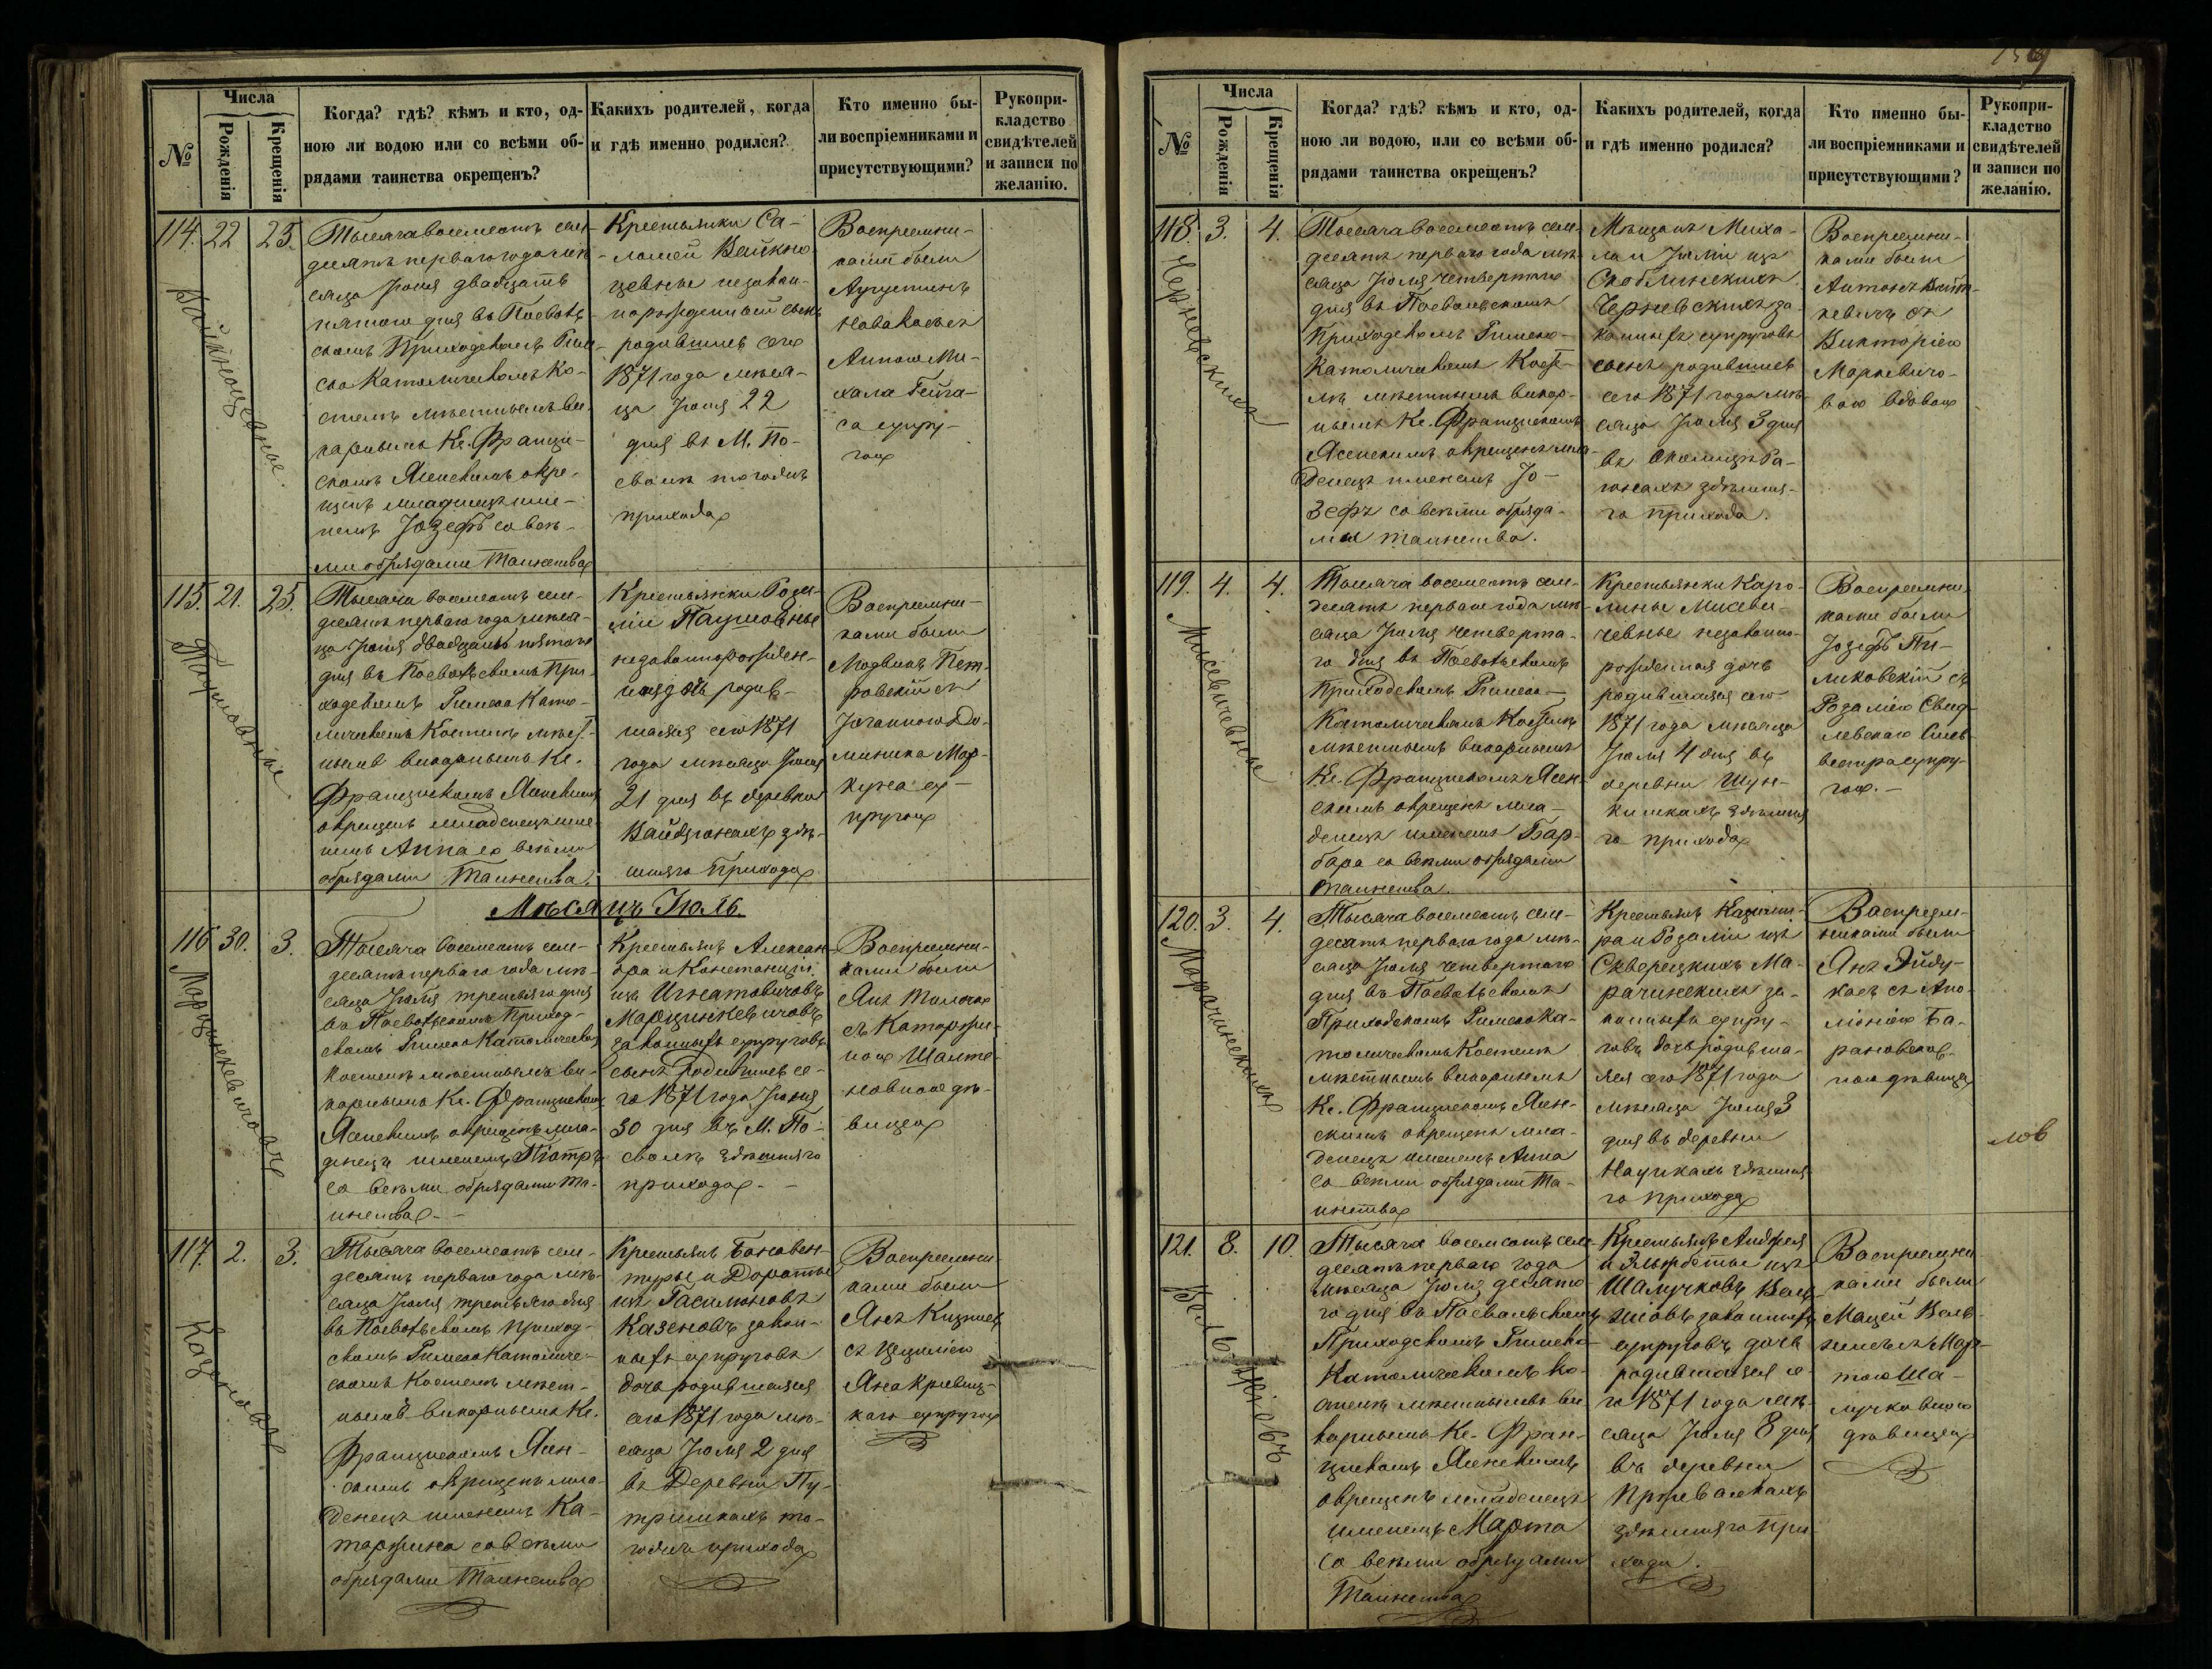 №
Числа
Рожденія
Крещенія
Когда? гдѣ? кѣмъ и кто, од-
ною ли водою или со всѣми об-
рядами таинства окрещенъ?
Какихъ родителей, когда
и гдѣ именно родился?
Кто именно бы-
ли воспріемниками и
присутствующими?
Рукопри-
кладство
свидѣтелей
и записи по
желанію.
114. 22 25.
Тысяча восемсотъ сем-
десятъ перваго года мѣ-
сяца Іюня двадцать
пятаго дня въ Поволь-
скомъ Приходскомъ Рим-
ско Католическомъ Ко-
стелѣ мѣстнымъ ви-
карнымъ Кс. Францис-
комъ Ясенскимъ окре-
щенъ младенецъ име-
немъ Іозефъ со всѣ-
ми обрядами Таинства
Крестьянки Са-
ломеи
незакон-
норожденный сынъ
родившись сего
1871 года мѣся-
ца Іюня 22
дня въ М. По-
сволѣ тогожъ
прихода
Воспреемни-
ками были
Августинъ
Анною Ми-
хала
супру-
гою
115. 21. 25.
Тысяча восемсотъ сем-
десятъ перваго года мѣся-
ца Іюня двадцать пятаго
дня въ Посвольскомъ При-
ходскомъ Римско Като-
лическомъ Костелѣ мѣст-
нымъ викарнымъ Кс.
Францискомъ Ясенскимъ
окрещенъ младенецъ име-
немъ Анна со всѣми
обрядами Таинства.
Крестьянки Роза-
ліи
незаконнорожден-
ная дочь родив-
шаяся сего 1871
года мѣсяца Іюня
21 дня въ деревни
здѣ-
шняго Прихода
Воспреемни-
ками были
Людвикъ Пет-
ровскій съ
Іоганною До-
миника Мар-
су-
пругою
Мѣсяцъ Іюль.
116 30. 3.
Марцинкевичовъ
Тысяча восемсотъ сем-
десятъ перваго года мѣ-
сяца Іюля третьяго дня
въ Посвольскомъ Приход-
скомъ Римско Католическомъ
Костелѣ мѣстнымъ ви-
карнымъ Кс. Францискомъ
Ясенскимъ окрещенъ мла-
денецъ именемъ Піотръ
со всѣми обрядами Та-
инства
Крестьянъ Алексан-
дра и Констанціи
изъ Игнатовичовъ
Марцинкевичовъ
законныхъ супруговъ
сынъ родившись се-
го 1871 года Іюня
30 дня въ М. По-
сволѣ здѣшняго
прихода.
Воспреемни-
ками были
Янъ
съ Катаржи-
ною
дѣ-
вицею
117. 2. 3.
Казеновъ
Тысяча восемсотъ сем-
десятъ перваго года мѣ-
сяца Іюля третьяго дня
въ Посвольскомъ Приход-
скомъ Римско Католиче-
скомъ Костелѣ мѣст-
нымъ викарнымъ Кс.
Францискомъ Ясен-
скимъ окрещенъ мла-
денецъ именемъ Ка-
таржина со всѣми
обрядами Таинства
Крестьянъ Бонавен-
туры и Дороты
изъ Гасилюновъ
Казеновъ закон-
ныхъ супруговъ
дочь родившаяся
сего 1871 года мѣ-
сяца Іюля 2 дня
въ Деревни Пу-
тришкахъ то-
гожъ прихода
Воспреемни-
ками были
Янъ
съ Цециліею
Яна
супругою
№
Числа
Рожденія
Крещенія
Когда? гдѣ? кѣмъ и кто, од-
ною ли водою, или со всѣми об-
рядами таинства окрещенъ?
Какихъ родителей, когда
и гдѣ именно родился?
Кто именно бы-
ли воспріемниками и
присутствующими?
Рукопри-
кладство
свидѣтелей
и записи по
желанію.
118. 3. 4.
Черневскихъ
Тысяча восемсотъ сем-
десятъ перваго года мѣ-
сяца Іюля четвертаго
дня въ Посвольскомъ
Приходскомъ Римско-
Католическомъ Косте-
лѣ мѣстнымъ викар-
нымъ Кс. Францискомъ
Ясенскимъ окрещенъ мла-
денецъ именемъ Іо-
зефъ со всѣми обряда-
ми таинства.
Мѣщанъ Миха-
ла и Юліи изъ
Скоблинскихъ
Черневскихъ за-
конныхъ супруговъ
сынъ родившись
сего 1871 года мѣ-
сяца Іюля 3 дня
въ околицѣ Ра-
здѣшня-
го прихода.
Воспреемни-
ками были
Антонъ
съ
Викторіею
Марцевичо-
вою вдовою
119. 4. 4.
Мисевичевны
Тысяча восемсотъ сем-
десятъ перваго года мѣ-
сяца Іюля четверта-
го дня въ Посвольскомъ
Приходскомъ Римско-
Католическомъ Костелѣ
мѣстнымъ викарнымъ
Кс. Францискомъ Ясен-
скимъ окрещенъ мла-
денецъ именемъ Бар-
бара со всѣми обрядами
таинства.
Крестьянки Каро-
лины Мисеви-
чевны незаконно-
рожденная дочь
родившаяся сего
1871 года мѣсяца
Іюля 4 дня въ
деревни Шун-
кишкахъ здѣшня-
го прихода
Воспреемни-
ками были
Іозефъ Пи-
ликовскій съ
Розаліею
супру-
гою.
120. 3. 4.
Марачинскихъ
Тысяча восемсотъ сем-
десятъ перваго года мѣ-
сяца Іюля четвертаго
дня въ Посвольскомъ
Приходскомъ Римско Ка-
толическомъ Костелѣ
мѣстнымъ викарнымъ
Кс. Францискомъ Ясен-
скимъ окрещенъ мла-
денецъ именемъ Анна
со всѣми обрядами Та-
инства
Крестьянъ Казими-
ра и Розаліи изъ
Скверецкихъ Ма-
рачинскихъ за-
конныхъ супру-
говъ дочь родивша-
яся сего 1871 года
мѣсяца Іюля 3
дня въ деревни
здѣшня-
го прихода
Воспреем-
никами были
Янъ Эйду-
касъ съ Апо-
лоніею Ба-
рановско-
ю дѣвицею
121. 8. 10.
Тысяча восемсотъ сем-
десятъ перваго года
мѣсяца Іюля десята-
го дня въ Посвольскомъ
Приходскомъ Римско
Католическомъ Ко-
стелѣ мѣстнымъ ви-
карнымъ Кс. Фран-
цискомъ Ясенскимъ
окрещенъ младенецъ
именемъ Марта
со всѣми обрядами
Таинства
Крестьянъ Андрея
и Эльжбеты изъ
Шалучковъ
законныхъ
супруговъ дочь
родившаяся се-
го 1871 года мѣ-
сяца Іюля 8 дня
въ деревни
здѣшняго При-
хода.
Воспреемни-
ками были
Мацей
съ Мар-
тою Ша-
лучковною
дѣвицею